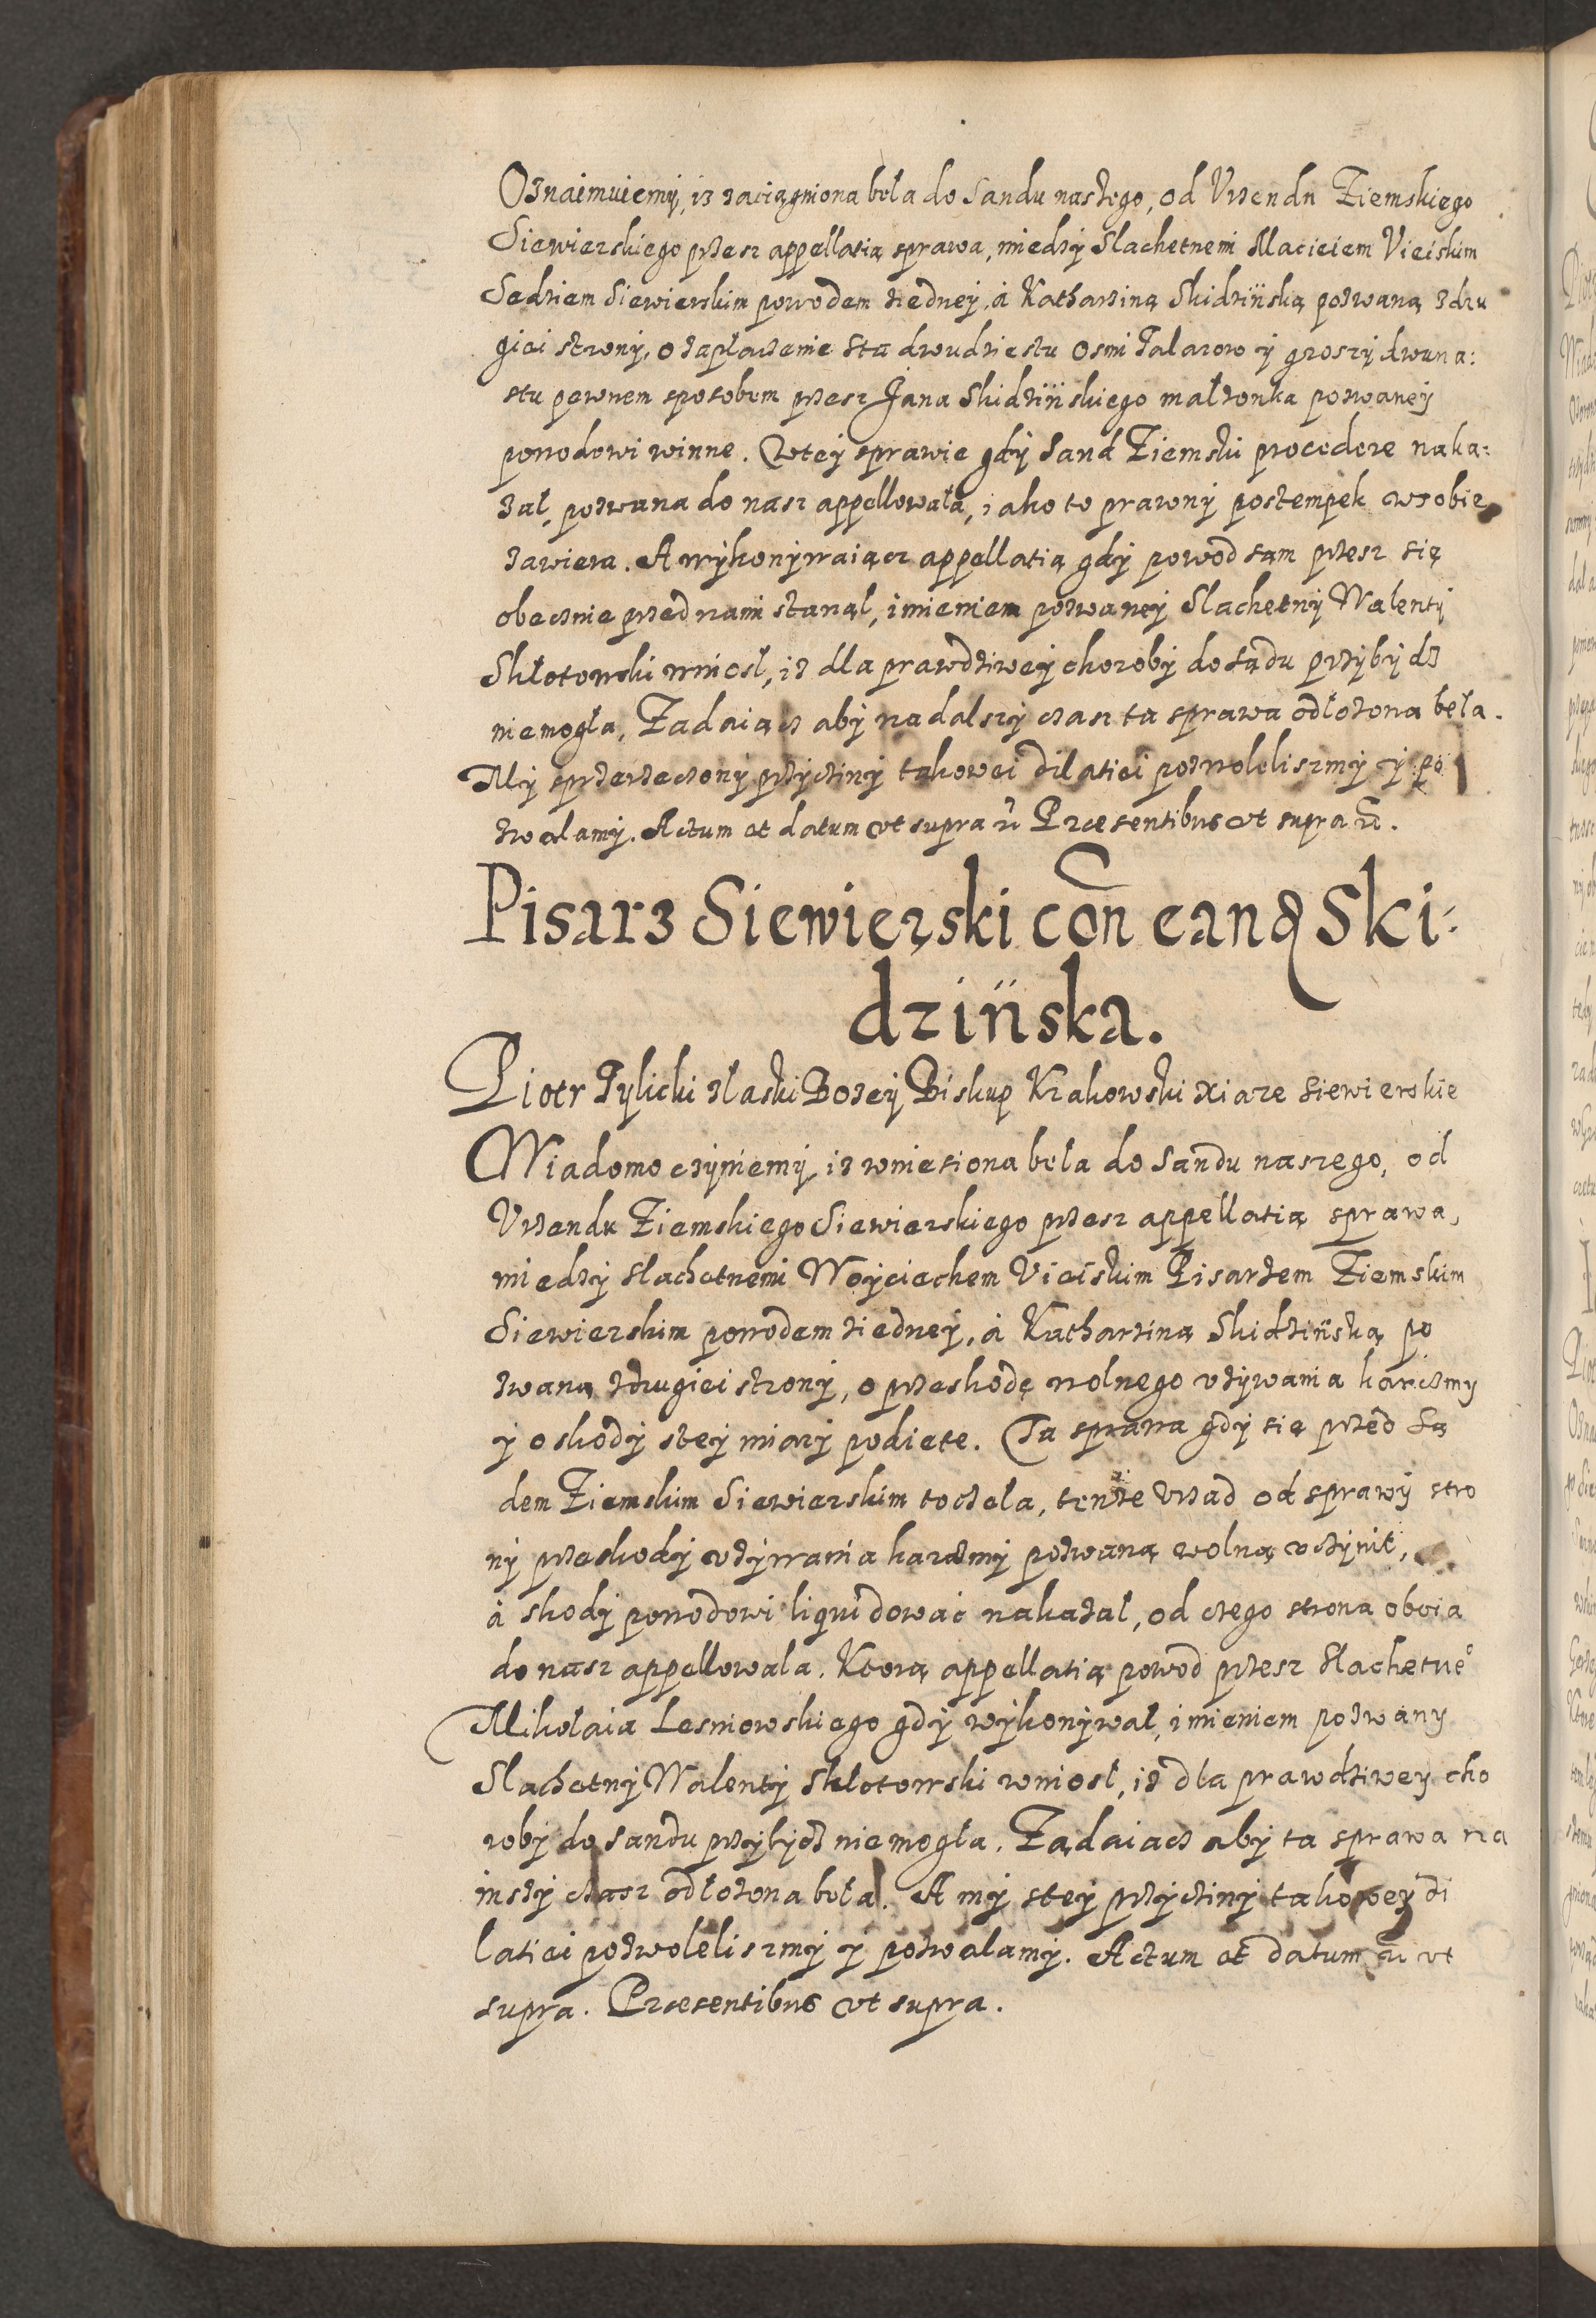 Oznaimuiemy, iz zaciągniona beła do Sandu naszego, od Vrzendu Ziemskiego
Siewierskiego przesz appellatią sprawa, miedzy Slachetnemi Macieiem Vieiskim
Sedziem Siewierskim powodem ziedney, á Katharziną Skidzińską pozwaną zdru
giei strony, o zapłaczenie sta dwudziestu osmi Talarow y groszy dwuna:
stu pewnem sposobem przesz Jana Skidzińskiego małzonka pozwaney
powodowi winne. Wtey sprawie gdy Sand Ziemski procedere naka:
zał, pozwana do nasz appellowała, iako to prawny postempek wsobie
zawiera. A wykonywaiącz appellatią gdy powod sam przesz się
obecznie przed nami stanął, imieniem pozwaney Slachetny Walenty
Skłotowski wniosł, iz dla prawdziwey choroby do sądu przybydz
niemogła, Ządaiącz aby na dalszy czasz ta sprawa odłozona beła.
My sprzerzeczony przyczyny takowei dilatiei pozwolelismy y po
zwalamy. Actum et datum vt supra Præsentibus vt supra.
Pisarz Siewierski con eanđ Ski-
dzińska.
Piotr Tylicki złaski Bozey Biskup Krakowski Xiaze Siewierskie
Wiadomo czyniemy iz wniesiona beła do Sandu naszego, od
Vrzendu Ziemskiego Siewierskiego przesz appellatią sprawa,
miedzy slachetnemi Woyciechem Vieiskim Pisarzem Ziemskim
Siewierskim powodem ziedney, á Katharziną Skidzińską po
zwaną zdrugiei strony, o przeskodę wolnego vzywania karczmy
y o skody stey miary podiete. Ta sprawa gdy się przed Są
dem Ziemskim Siewierskim toczeła, tenze Vrzad od sprawy stro
ny przeskody vzywania karczmy pozwaną wolną vczynił,
á skody powodowi liquidować nakazał, od czego strona oboia
do nasz appellowala. Ktorą appellatią powod przesz Slachetne°
Mikołaia Lesniowskiego gdy wykonywał, imieniem pozwany
Slachetny Walenty Skłotowski wniosł, iz dla prawdziwey cho
roby do sandu przybydz niemogła. Ządaiacz aby ta sprawa na
inszy czasz odłozona beła. A my stey przyczyny takowey di
latiei pozwolelismy y pozwalamy. Actum et datum vt
supra. Præsentibus vt supra.